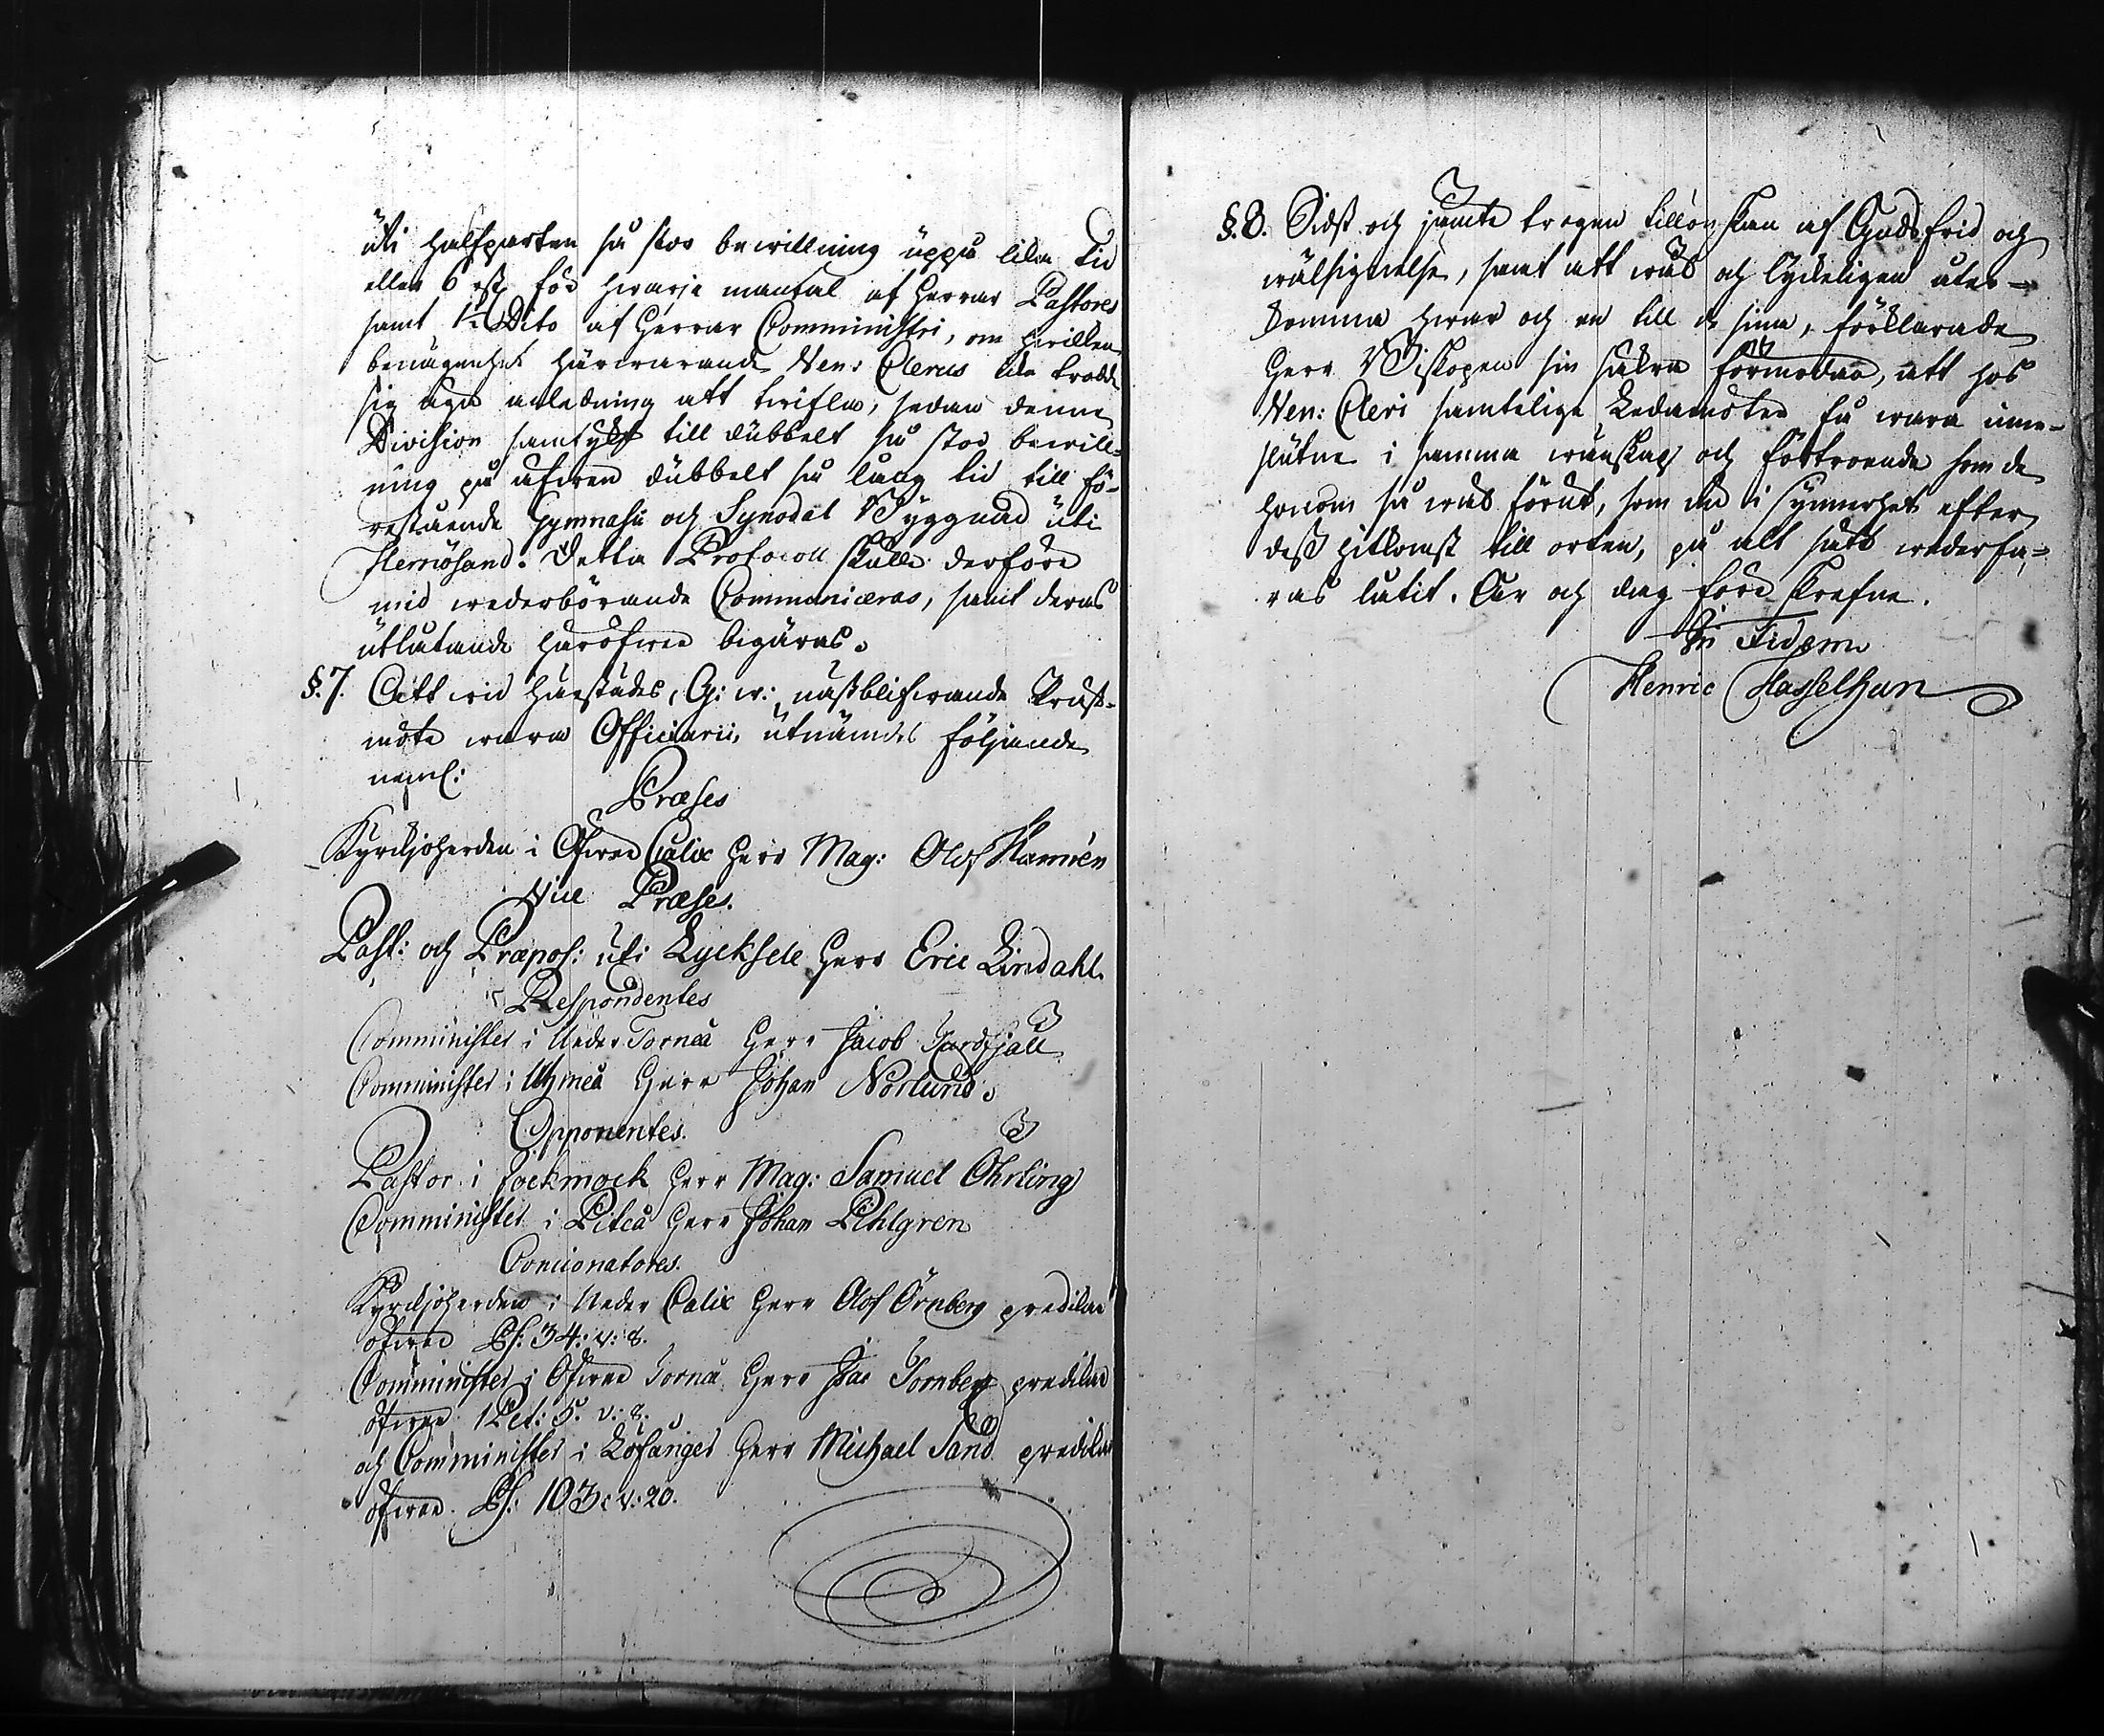 uti halfparten så stor bewillning uppå lika tid
eller 6 rst. för hwarje mantal af Herrar Pastores
samt 1½ Dito af Herrar Comministri, om hwilken
benägenhet härwarande Ven: Clerus icke trodde
sig äga anledning att twifla, sedan denne
Division samtyckt till dubbelt så stor bewill-
ning på äfwen dubbelt så lång tid till fö-
restående Gymnasii och Synodal Byggnad uti
Hernösand. Detta Protocoll skulle derföre
med wederbörande Communiceras, samt deras
utlåtande häröfwer begäras.
§. 7. Att wid härstädes, G: w: näst blifwande Prest-
möte wara Officiarii, utnämdes följande
neml:
Præses
Kyrckjoherden i Öfwer Calix Herr Mag: Olof Hamrén
Vice Præses.
Past: och Præpos: uti Lycksele Herr Eric Lindahl.
Respondentes
Comminister i Neder Torneå Herr Jacob
Comminister i Uhmeå Herr Johan Norlund.
Opponentes.
Pastor i Jockmock Herr Mag: Samuel Öhrling
Comminister i Piteå Herr Johan Pihlgren
Concionatores.
Kyrckjoherden i Neder Calix Herr Olof Örnberg predikar
öfwer Ps: 34: v: 8.
Comminister i Öfwer Torneå Herr Isac Tornberg predikar
öfwer 1 Pet: 5. v: 8.
och Comminister i Löfånger Herr Michael Sand predikar
öfwer Ps: 103: v: 20.
§. 8. Sidst och jämte trogen tillönskan af Guds frid och
wälsignelse, samt att wäl och lyckeligen åter-
komma hwar och en till de sina, förklarade
Herr Biskopen sin säkra förmodan, att hos
Ven: Cleri samtelige Ledamöter få wara inne-
sluten i samma wänskap och förtroende som de
honom så wäl förut, som ock i synnerhet efter
dess hitkomst till orten, på alt sätt wederfa-
ras låtit. År och dag före skrefne.
In Fidem
Henric Hasselhun